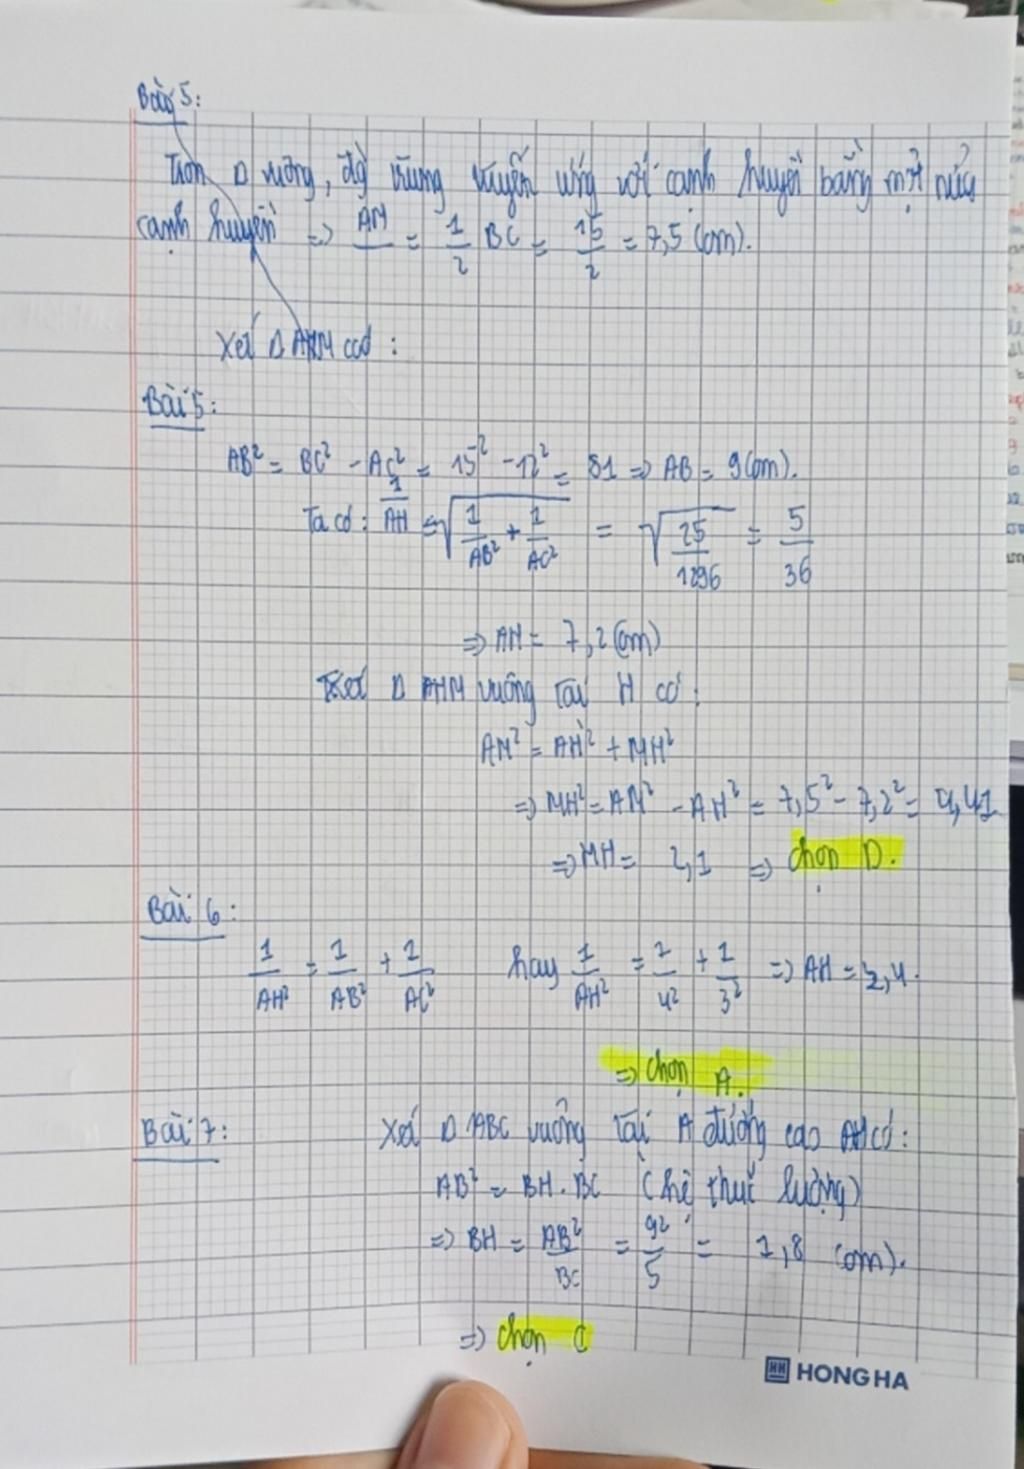 Bài 5:
Tron Δ vuông, đg trung tuyến ứng với cạnh huyền bằng một nửa
cạnh huyền => AM = 1/2 BC = 15/2 = 7,5 (cm).
Xét Δ AHM có :
Bài 5:
AB² = BC² - AC² = 15² - 12² = 81 => AB = 9 (cm).
Ta có: 1/AH = √(1/AB² + 1/AC²) = √(25/1296) = 5/36
=> AH = 7,2 (cm)
Xét Δ AHM vuông tại H có :
AM² = AH² + MH²
=> MH² = AM² - AH² = 7,5² - 7,2² = 4,41
=> MH = 2,1 => chọn D.
Bài 6 :
1/AH² = 1/AB² + 1/AC² hay 1/AH² = 1/4² + 1/3² => AH = 2,4.
=> chọn A.
Bài 7: Xét Δ ABC vuông tại A đường cao AH có :
AB² = BH . BC (hệ thức lượng)
=> BH = AB²/BC = /5 = 1,8 (cm).
=> chọn C
HH HONG HA